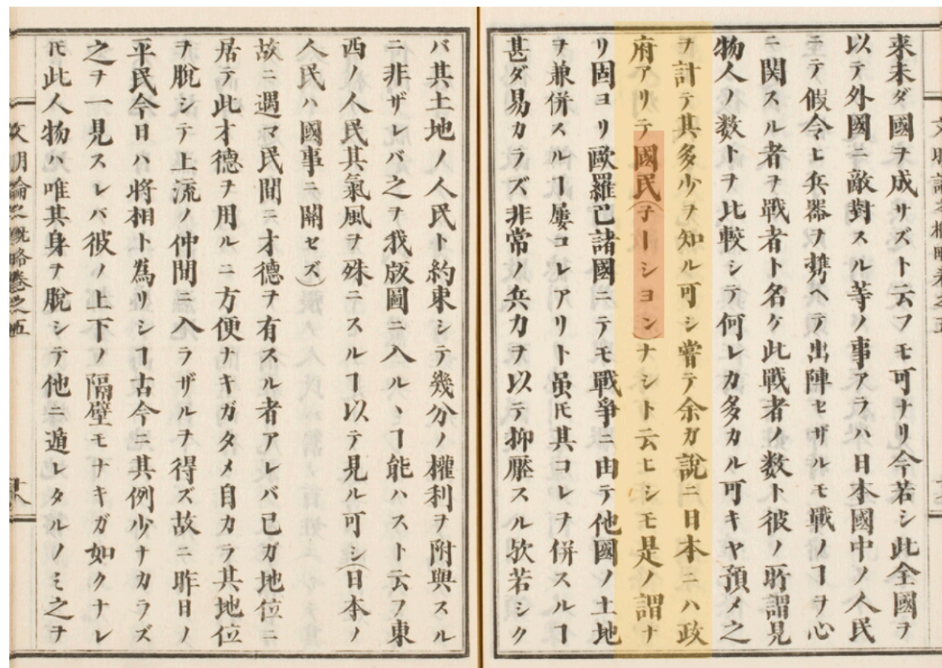 來未ダ國ヲ成サズト云フモ可ナリ今若シ此全國ヲ
以テ外國ニ敵對スル等ノ事アラハ日本國中ノ人民
ニテ假令ヒ兵器ヲ携ヘテ出陣セザルモ戰ノヿヲ心
ニ関スル者ヲ戰者ト名ケ此戰者ノ数ト彼ノ所謂見
物人ノ数トヲ比較シテ何レカ多カル可キヤ預メ之
ヲ計テ其多少ヲ知ル可シ嘗テ余ガ說ニ日本ニハ政
府アリテ國民(子ーション)ナシト云ヒシモ是ノ謂ナ
リ固ヨリ歐羅巴諸國ニテモ戰爭ニ由テ他國ノ土地
ヲ兼併スルヿ屢コレアリト雖𪜈其コレヲ併スルヿ
甚ダ易カラズ非常ノ兵力ヲ以テ抑壓スル欤若シク
バ其土地ノ人民ト約束シテ幾分ノ權利ヲ附與スル
ニ非ザレバ之ヲ我版圖ニ入ルヽヿ能ハスト云フ東
西ノ人民其氣風ヲ殊ニスルヿ以テ見ル可シ(日本ノ
人民ハ國事ニ關セズ)
故ニ遇マ民間ニ才德ヲ有スル者アレバ己ガ地位ニ
居テ此才德ヲ用ルニ方便ナキガタメ自カラ其地位
ヲ脫シテ上流ノ仲間ニ入ラザルヲ得ズ故ニ昨日ノ
平民今日ハ將相ト為リシヿ古今ニ其例少ナカラズ
之ヲ一見スレバ彼ノ上下ノ隔壁モナキガ如クナレ
𪜈此人物ハ唯其身ヲ脫シテ他ニ遁レタルノミ之ヲ
文明論之概略卷之五